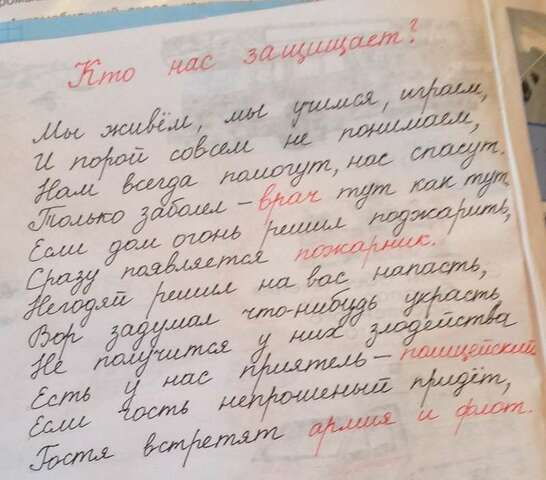 Кто нас защищает?
Мы живём, мы учимся, играем,
И порой совсем не понимаем,
Нам всегда помогут, нас спасут.
Только заболел – врач тут как тут,
Если дом огонь решил поджарить,
Сразу появляется пожарник.
Негодяй решил на вас напасть,
Вор задумал что-нибудь украсть
Не получится у них злодейства
Есть у нас приятель – полицейский
Если гость непрошеный придёт,
Гостя встретят армия и флот.